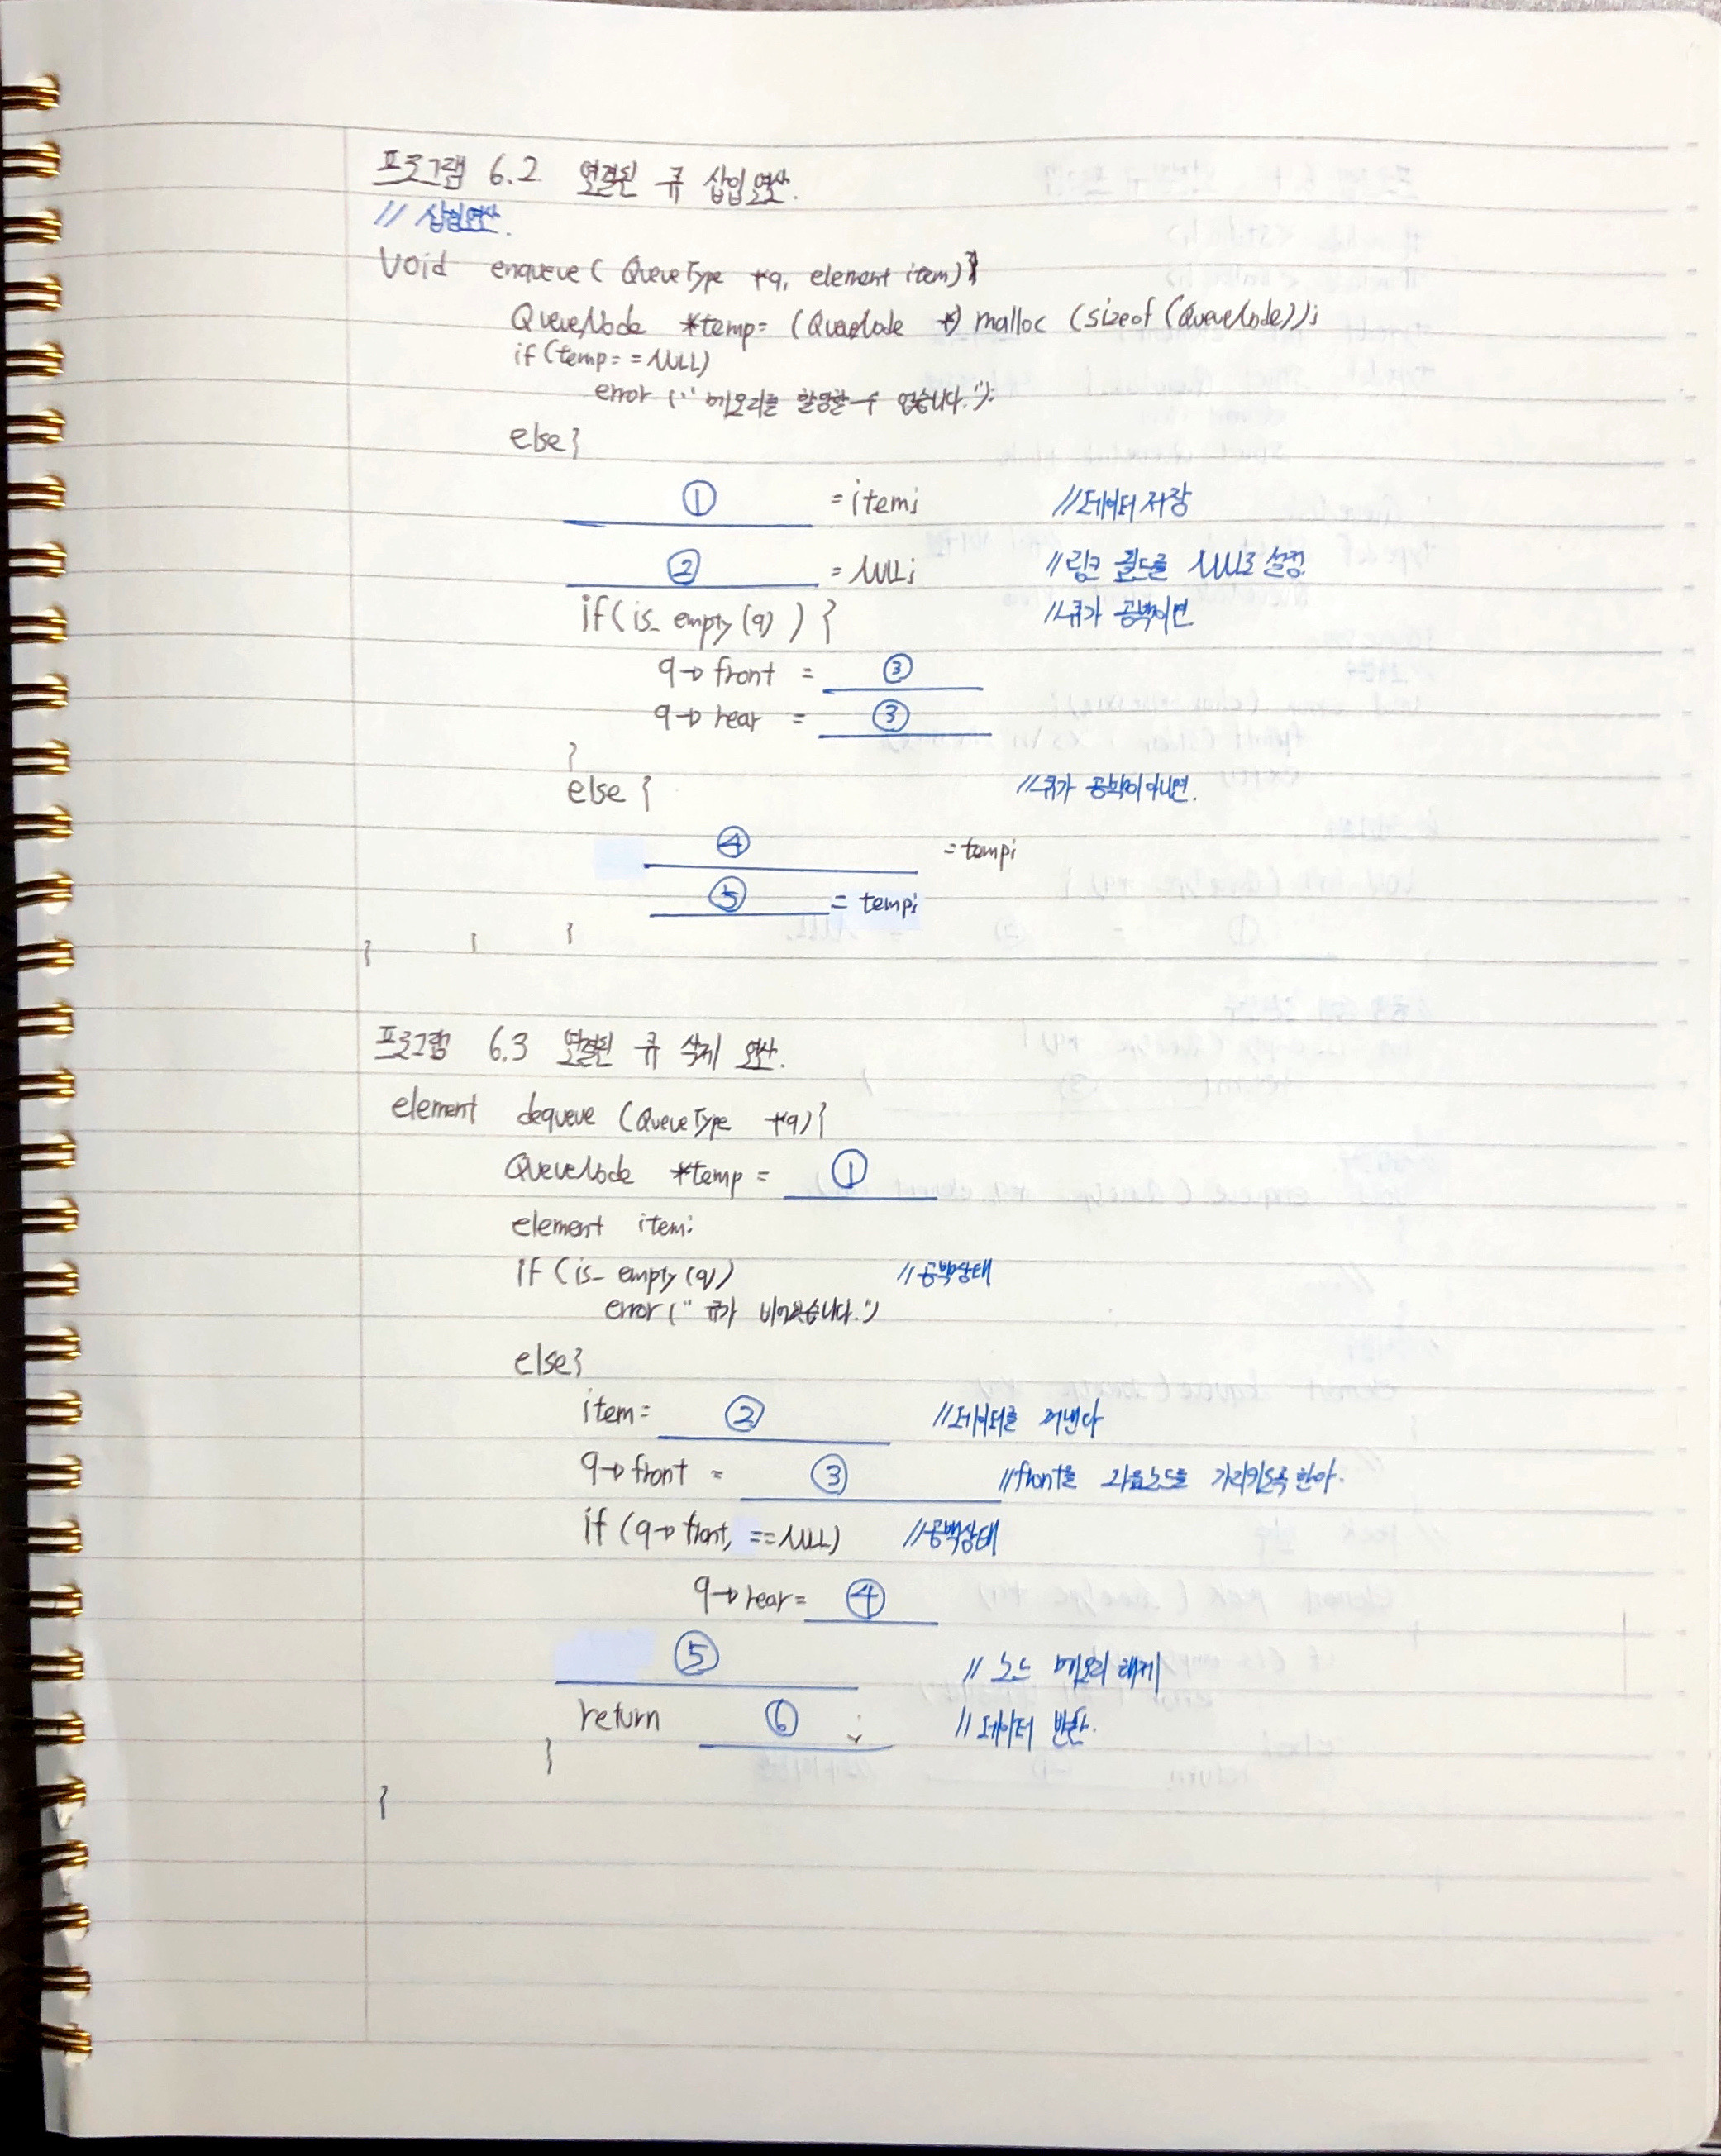 프로그램 6.2 연결된 큐 삽입 연산.
// 삽입연산.
void enqueue( QueueType *q, element item){
QueueNode *temp= (QueueNode *) malloc (sizeof(QueueNode));
if(temp==NULL)
error ("메모리를 할당할 수 없습니다.");
else{
① =item; //데이터 저장
② =NULL; //링크 필드를 NULL로 설정
if(is_empty(q)) { //큐가 공백이면
q→front = ③
q→rear = ③
}
else { //큐가 공백이 아니면.
④ =temp;
⑤ = temp;
} } }
프로그램 6.3 연결된 큐 삭제 연산.
element dequeue (QueueType *q){
QueueNode *temp = ①
element item;
if(is_empty(q)) //공백상태
error(" 큐가 비어있습니다.")
else{
item= ② //데이터를 꺼낸다
q→front = ③ //front를 다음노드를 가리키도록 한다.
if (q→front, ==NULL) //공백상태
q→rear= ④
⑤ // 노드 메모리 해제
return ⑥ ; // 데이터 반환.
}
}